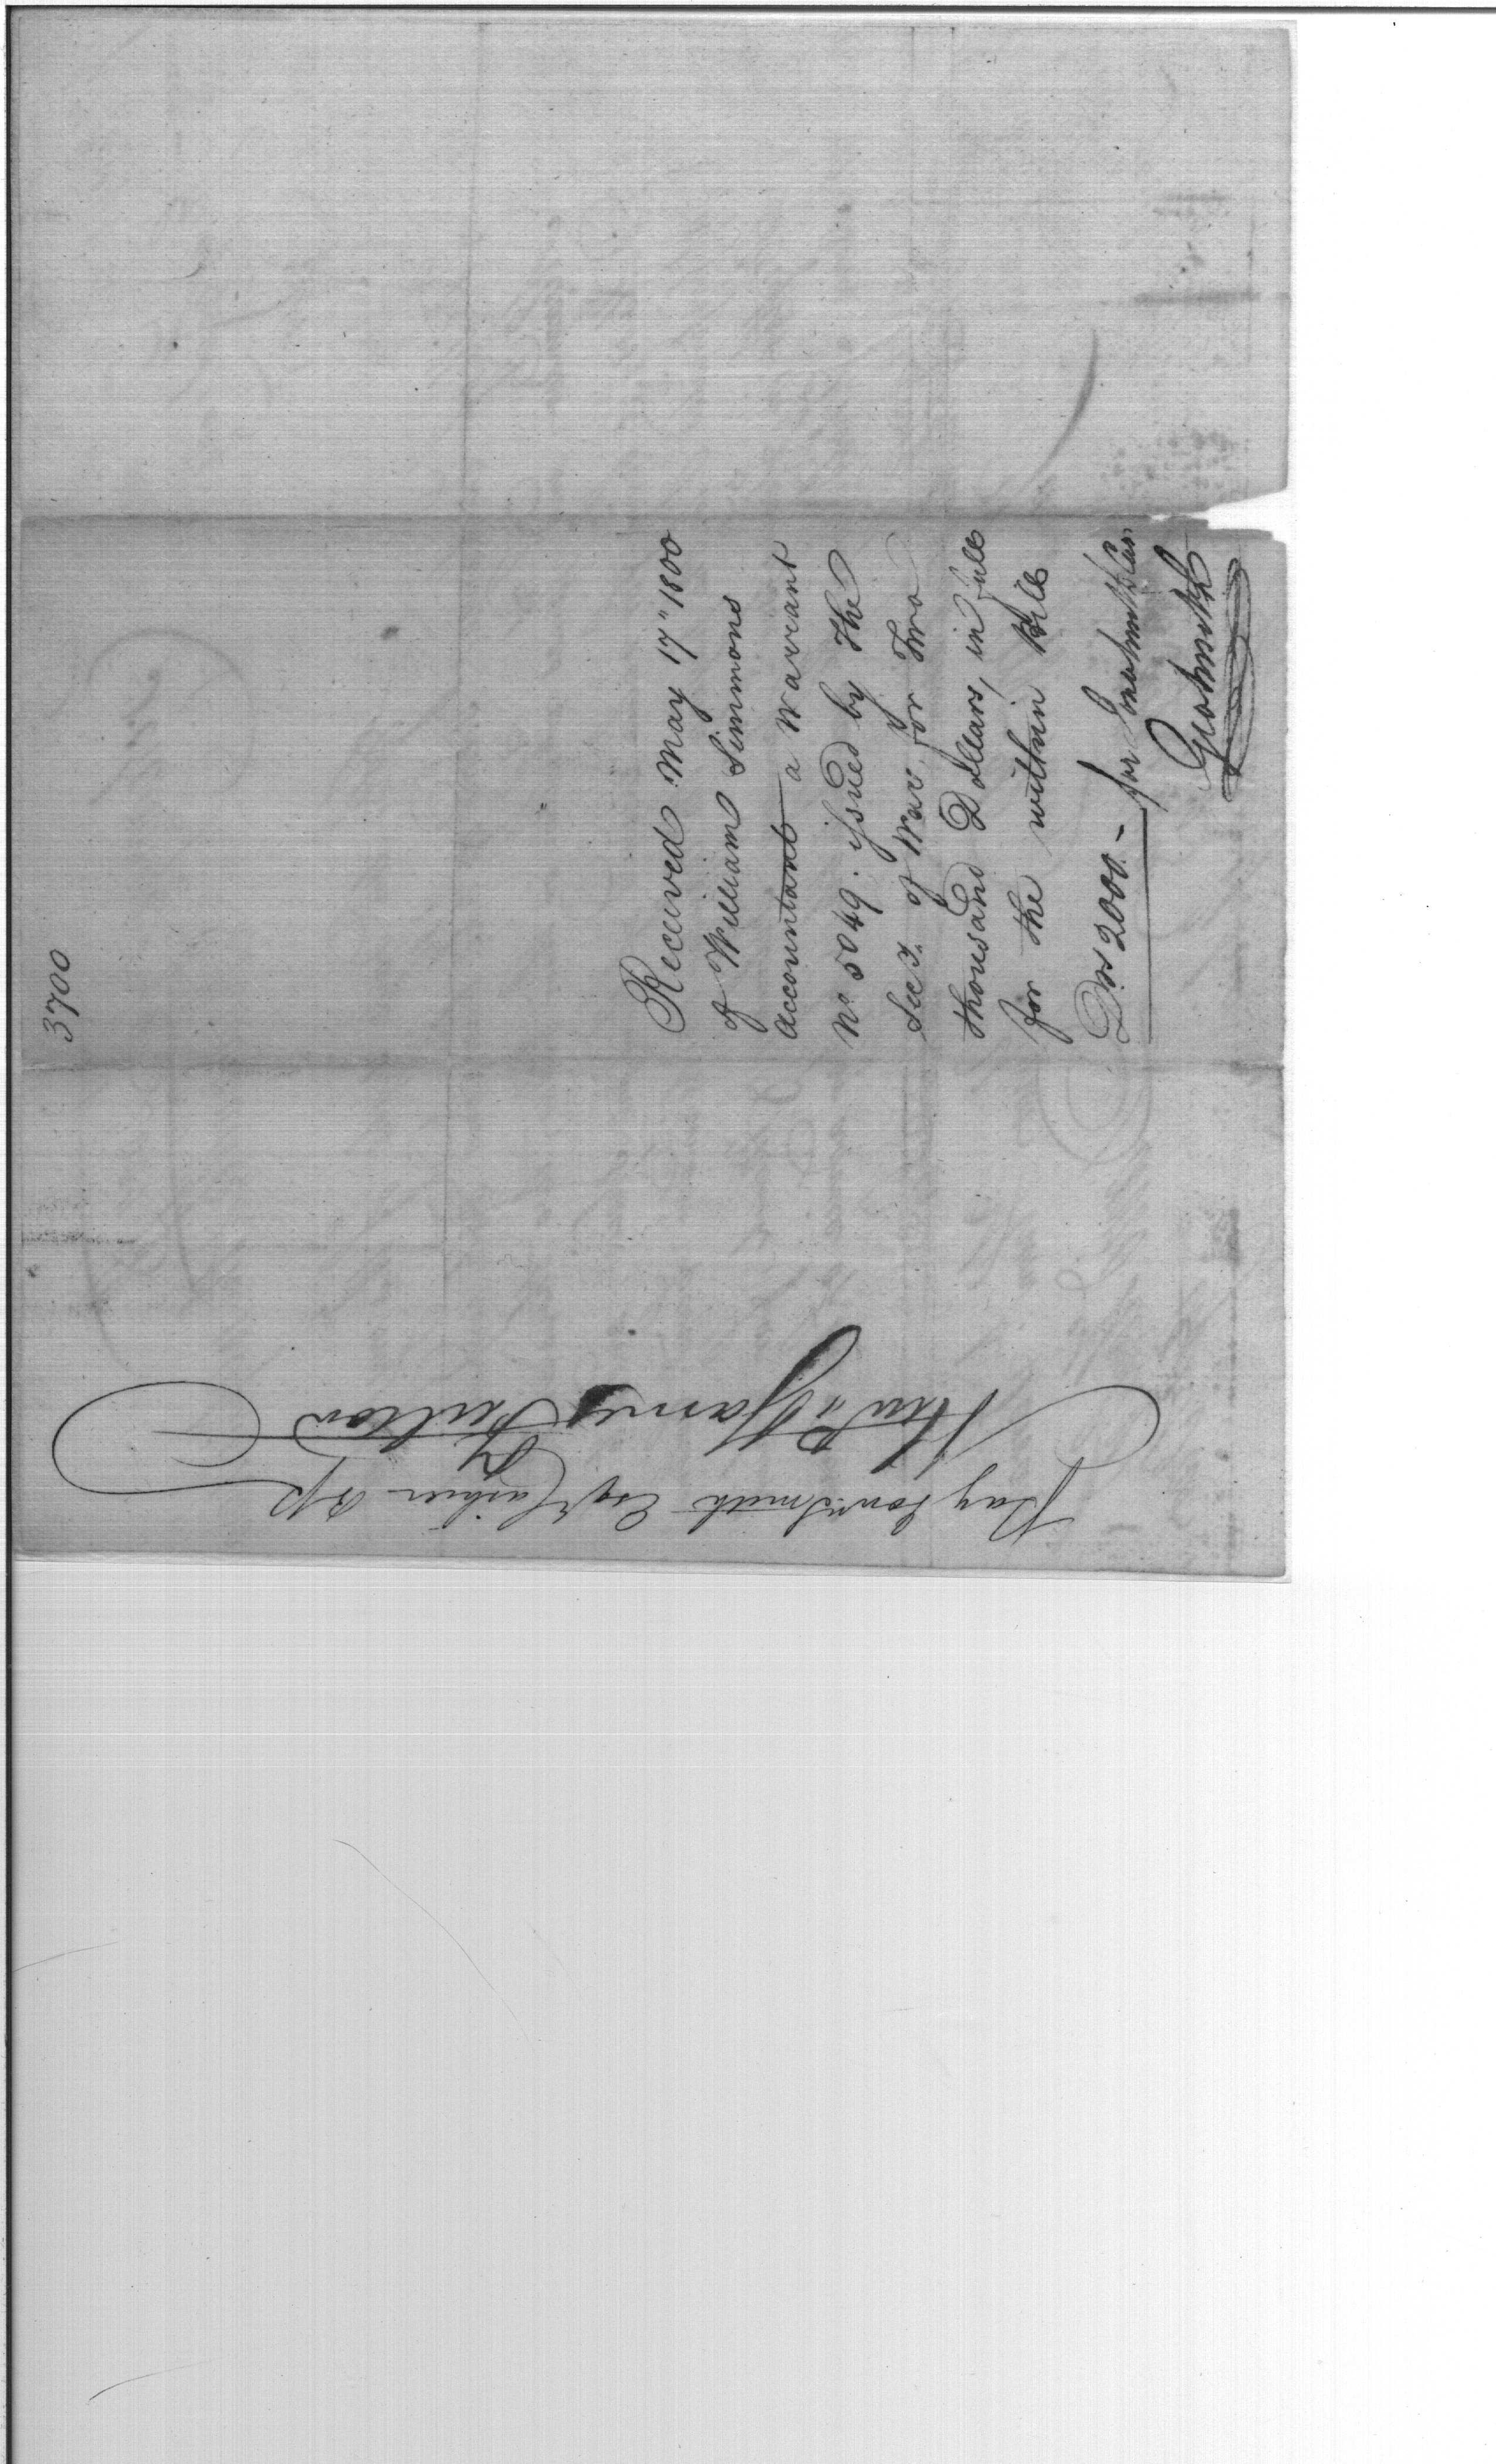 3700
Received May 17" 1800
of William Simmons
accountant a Warrant
No. 5049. issued by the
Secy. of War, for Two
thousand Dollars, in full
for the within Bill
Drs 2000.- for Jonathn Smith Cas
Geo Smith
Pay Jonn. Smith Esqr Cashier BP
James